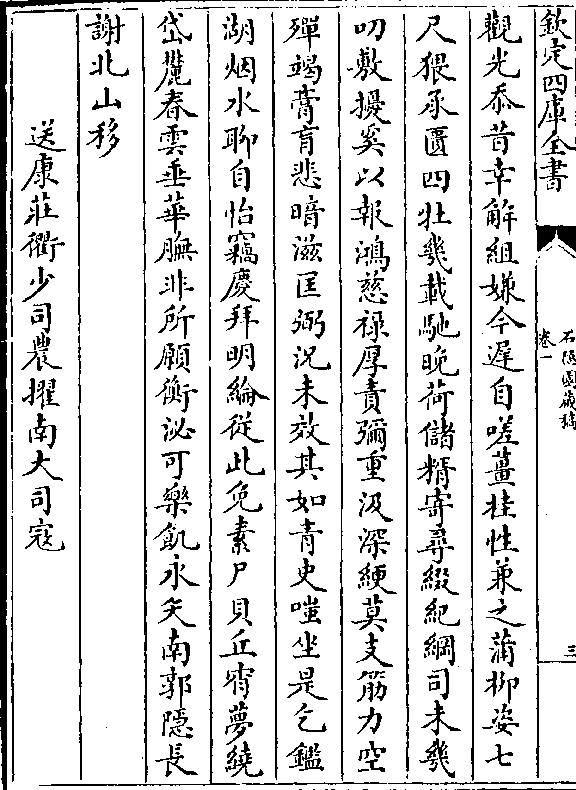 欽定四庫全書
石隱園藏稿
卷一
三
觀光忝昔幸解組嫌今遲自嗟薑桂性兼之蒲柳姿七
尺猥承匱四牡幾載馳晚荷儲糈寄尋綴紀綱司未幾
叨敷擾奚以報鴻慈祿厚責彌重汲深綆莫支筋力空
殫竭膏肓悲暗滋匡弼況未效其如青史嗤坐是乞鑑
湖烟水聊自怡竊慶拜明綸從此免素尸貝丘宵夢繞
岱麓春雲垂華膴非所願衡泌可樂飢永矢南郭隱長
謝北山移
送康莊衢少司農擢南大司寇